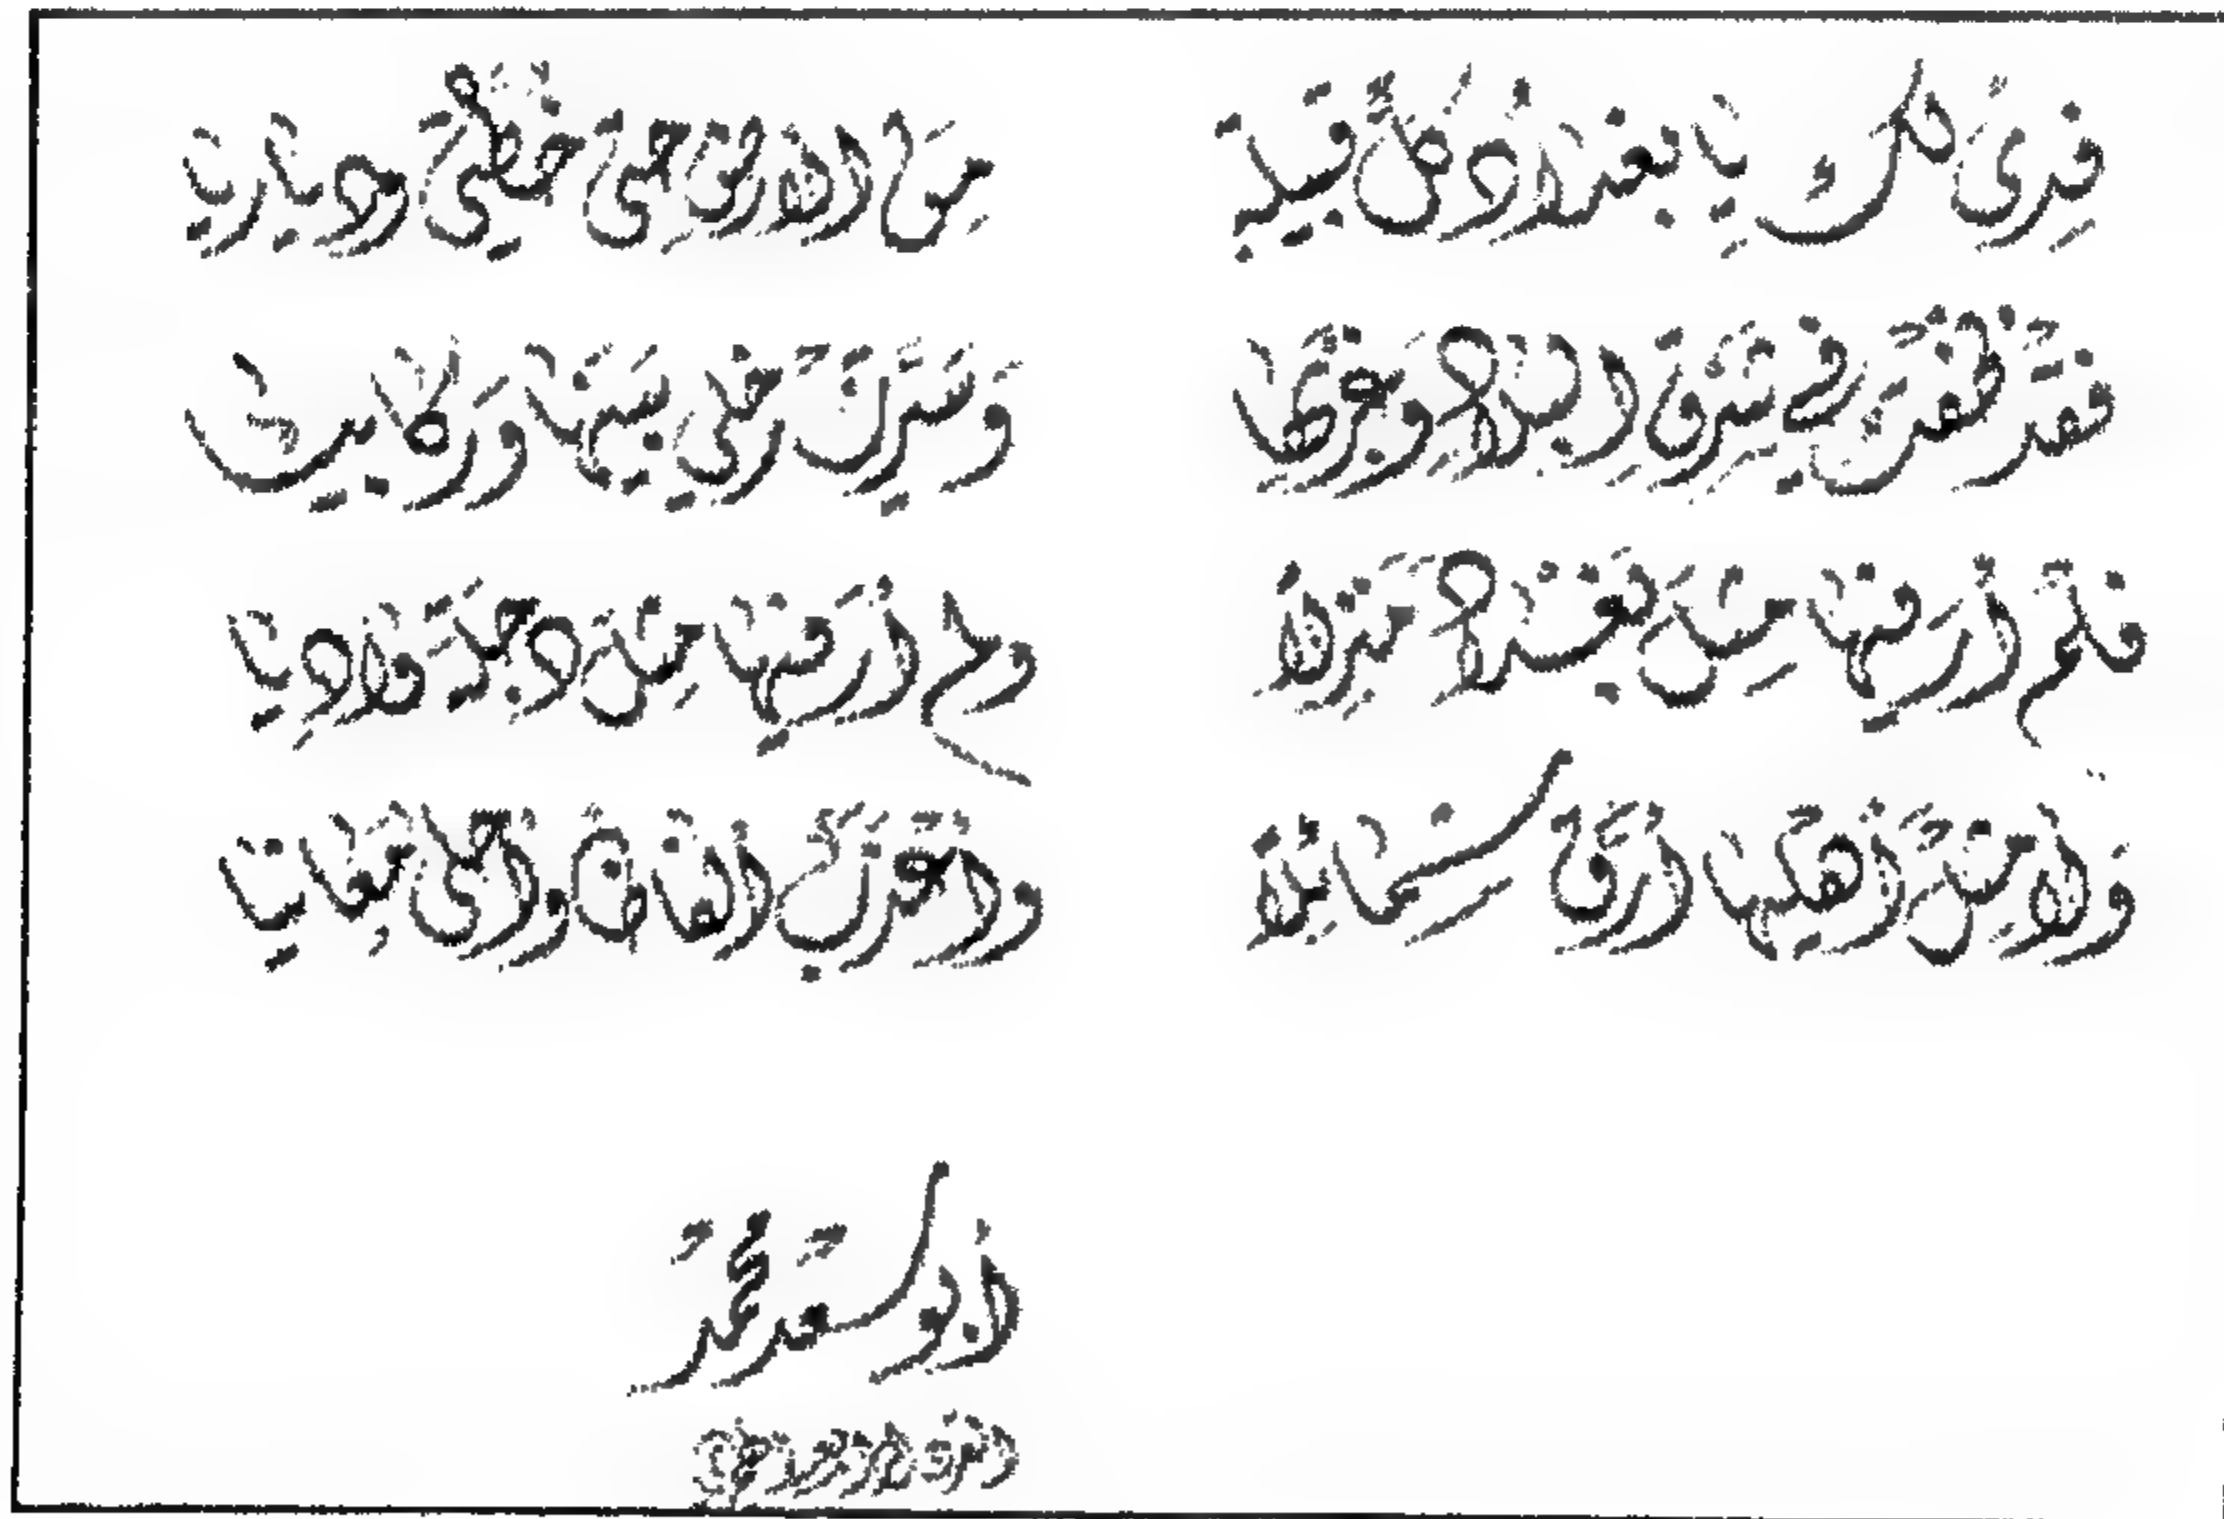 فِدىً لكَ يَا بَغْدَادُ كُلُّ قَبِيلَةٍ مِنَ الأَرْضِ حَتَّى خِطَّتِي وَدِيَارِيَا
فَقَدْ طُفْتُ فِي شَرْقِ البِلَادِ وَغَرْبِهَا وَسَيَّرْتُ رَحْلِي بَيْنَهَا وَرِكَابِيَا
فَلَمْ أَرَ فِيهَا مِثْلَ بَغْدَادَ مَنْزِلاً وَلَمْ أَرَ فِيهَا مِثْلَ دِجْلَةَ وَادِيَا
وَلَا مِثْلَ أَهْلِيهَا أَرَقَّ شَمَائِلاً وَأَعْذَبَ أَلْفَاظاً وَأَحْلَى مَعَانِيَا
أَبُو سَعْدٍ مُحَمَّدُ